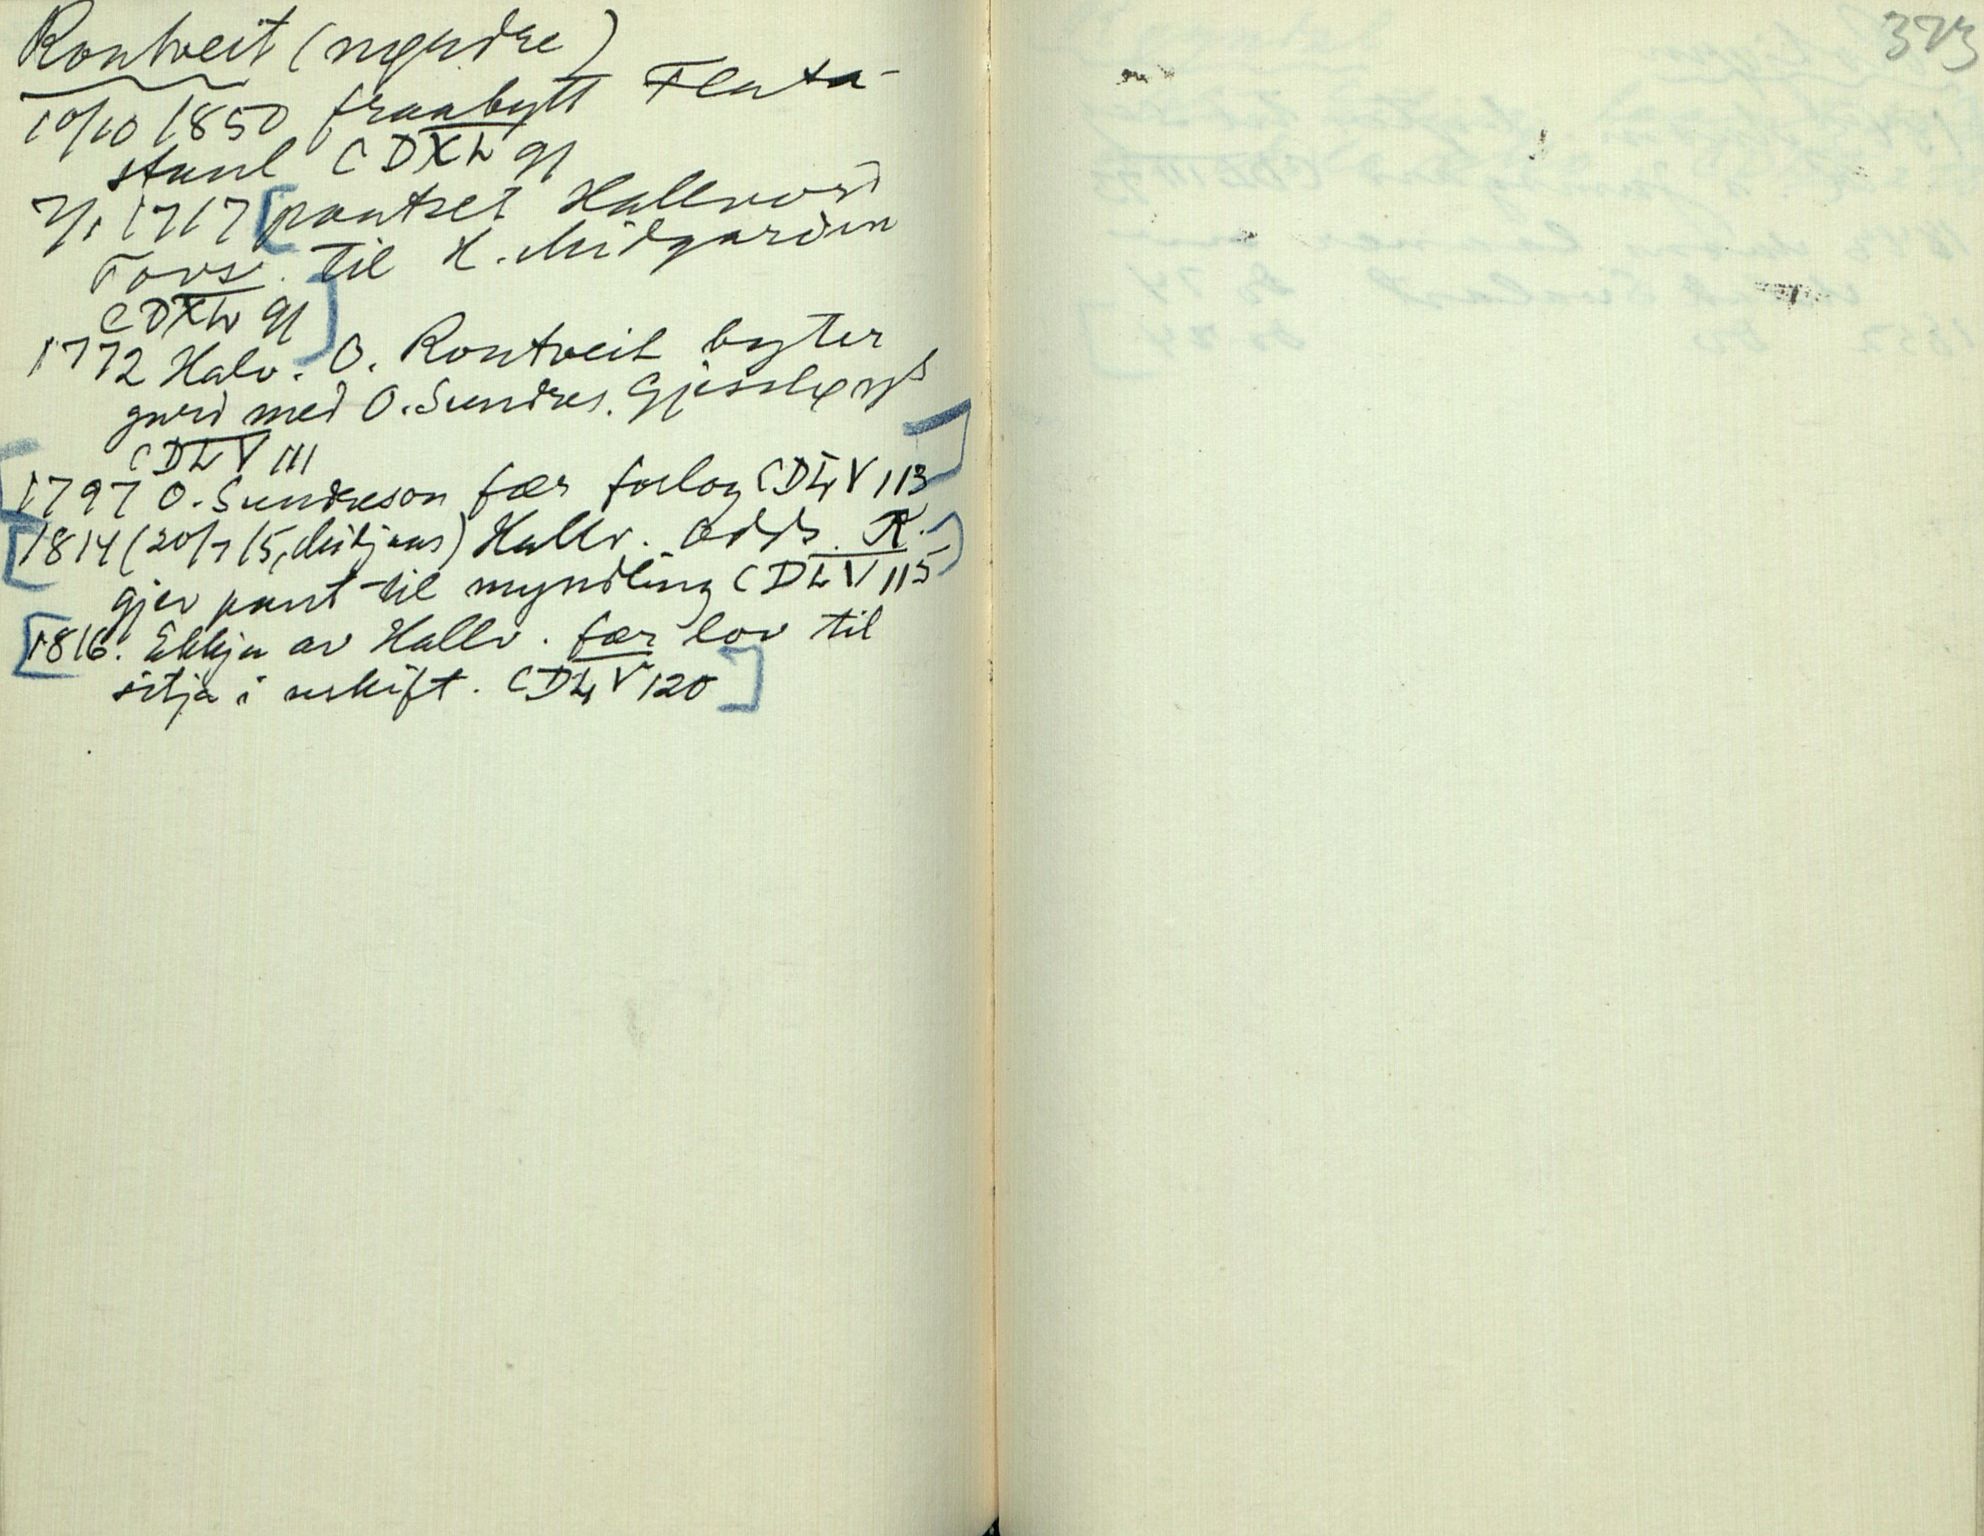 Rontveit (nørdre)
10/10 1850 fraabytt Flata-
staul CDXL 91
7/1 1717 [pantset Hallvord
Tovs. til H. Midgarden
CDXL 91]
1772 Halv. O. Rontveit byter
gard med O. Sundres.
CDLV 111
1797 O. Sundreson fær forlog CDLV 113
1814 (20/7 15, ) Hallv. Odds. R.
gjev pant til myndling CDLV 115
1816. Ekkja av Hallv. fær lov til
sitja i uskift. CDLV 120
373